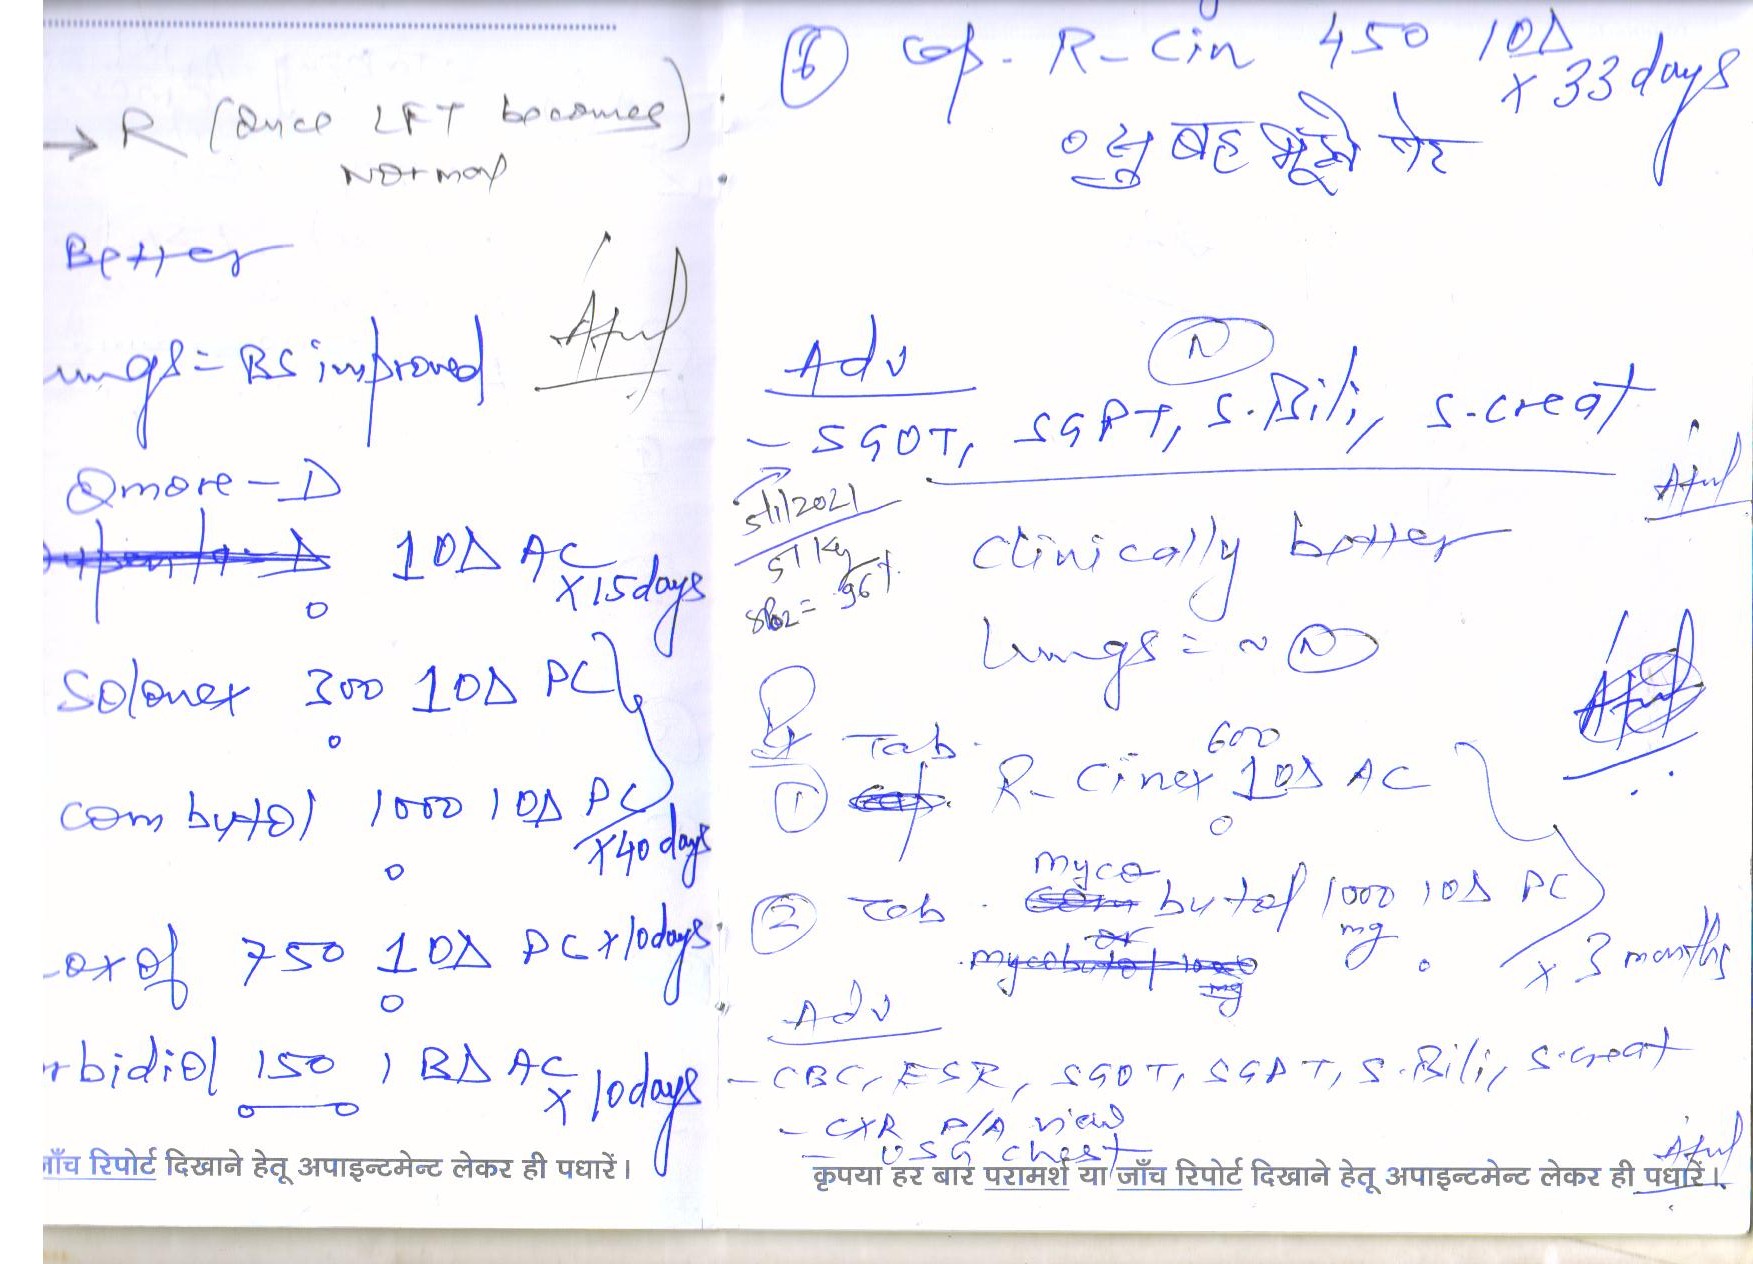 → R (Once LFT becomes)
Normal
Better
ungs = BS improved
Qmore - D
1 OD AC
x 15 days
Solonex 300 1 OD PC
combutol 1000 1 OD PC
x 40 days
oxof 750 1 OD PC x 10 days
rbidiol 150 1 BD AC
x 10 days
जाँच रिपोर्ट दिखाने हेतू अपाइन्टमेन्ट लेकर ही पधारें।
6 cap. R-Cin 450 1 OD
x 33 days
सुबह भूखे पेट
Adv
N
- SGOT, SGPT, S.Bili, S-creat
5/1/2021
51 kg
SPO2 = 96%
Clinically better
Lungs = ~ N
Rx
1 Tab. R-Cinex 600 1 OD AC
2 Tab. myco butol 1000 mg 1 OD PC
x 3 months
Adv
- CBC, ESR, SGOT, SGPT, S.Bili, S.creat
- CXR P/A view
- USG chest
कृपया हर बार परामर्श या जाँच रिपोर्ट दिखाने हेतू अपाइन्टमेन्ट लेकर ही पधारें।